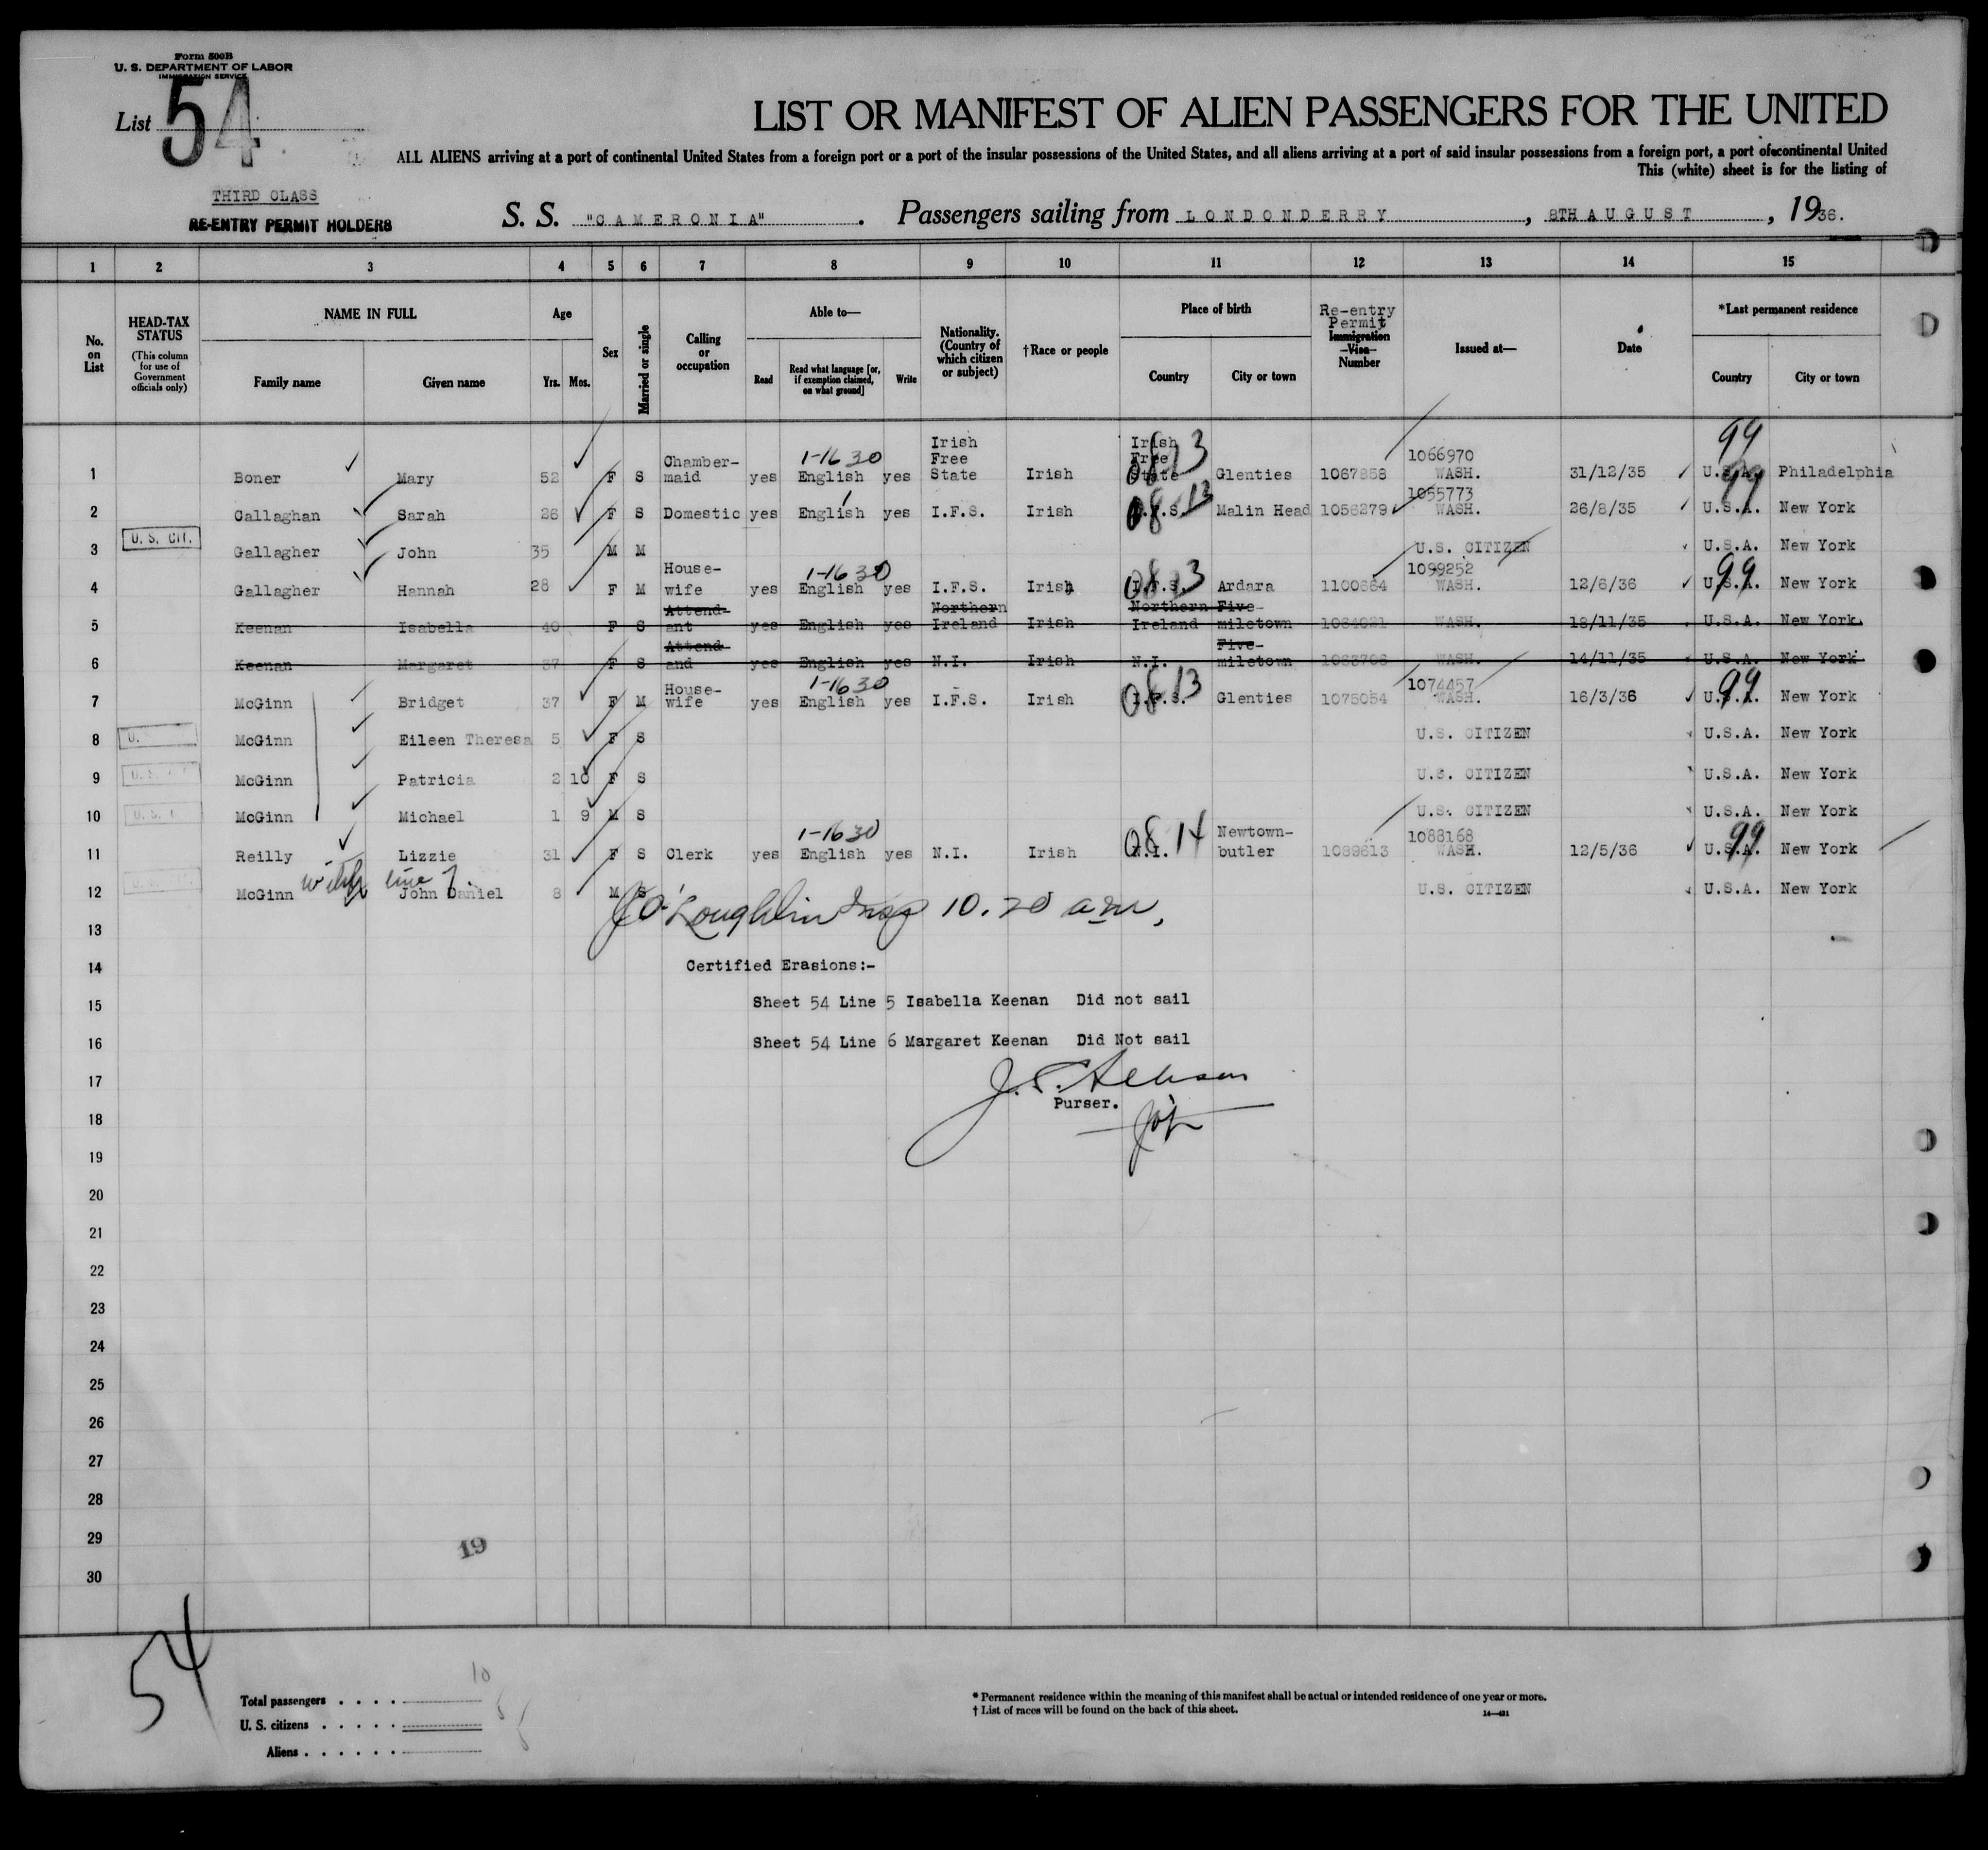 Form 500B
U. S. DEPARTMENT OF LABOR
IMMIGRATION SERVICE
List 54
LIST OR MANIFEST OF ALIEN PASSENGERS FOR THE UNITED
ALL ALIENS arriving at a port of continental United States from a foreign port or a port of the insular possessions of the United States, and all aliens arriving at a port of said insular possessions from a foreign port, a port of continental United
This (white) sheet is for the listing of
THIRD CLASS
RE-ENTRY PERMIT HOLDERS
S. S. "CAMERONIA" . Passengers sailing from LONDONDERRY , 8TH AUGUST , 1936.
1 2 3 4 5 6 7 8 9 10 11 12 13 14 15
No. on List
HEAD-TAX STATUS
(This column for use of Government officials only)
NAME IN FULL
Family name Given name
Age
Yrs. Mos.
Sex
Married or single
Calling or occupation
Able to—
Read
Read what language [or, if exemption claimed, on what ground]
Write
Nationality. (Country of which citizen or subject)
†Race or people
Place of birth
Country City or town
Re-entry Permit
Immigration Visa Number
Issued at—
Date
*Last permanent residence
Country City or town
1 Boner Mary 52 F S Chamber-maid yes 1-1630 English yes Irish Free State Irish Irish Free State Glenties 1067858 1066970 WASH. 31/12/35 99 U.S.A. Philadelphia
2 Callaghan Sarah 26 F S Domestic yes English yes I.F.S. Irish I.F.S. 0813 Malin Head 1056279 1055773 WASH. 26/8/35 99 U.S.A. New York
3 U. S. CIT. Gallagher John 35 M M U.S. CITIZEN U.S.A. New York
4 Gallagher Hannah 28 F M House-wife yes 1-1630 English yes I.F.S. Irish I.F.S. Ardara 1100664 1099252 WASH. 12/6/36 99 U.S.A. New York
5 Keenan Isabella 40 F S Attend-ant yes English yes Northern Ireland Irish Northern Ireland Five-miletown WASH. 18/11/35 U.S.A. New York.
6 Keenan Margaret 37 F S Attend-and yes English yes N.I. Irish N.I. Five-miletown WASH. 14/11/35 U.S.A. New York
7 McGinn Bridget 37 F M House-wife yes 1-1630 English yes I.F.S. Irish I.F.S. 0813 Glenties 1075054 1074457 WASH. 16/3/36 99 U.S.A. New York
8 McGinn Eileen Theresa 5 F S U.S. CITIZEN U.S.A. New York
9 McGinn Patricia 2 10 F S U.S. CITIZEN U.S.A. New York
10 McGinn Michael 1 9 M S U.S. CITIZEN U.S.A. New York
11 Reilly Lizzie 31 F S Clerk yes 1-1630 English yes N.I. Irish N.I. 0814 Newtown-butler 1089613 1088168 WASH. 12/5/36 99 U.S.A. New York
with line 7.
12 McGinn John Daniel 8 M S U.S. CITIZEN U.S.A. New York
J O'Loughlin Insp 10.20 am,
13
14 Certified Erasions:-
15 Sheet 54 Line 5 Isabella Keenan Did not sail
16 Sheet 54 Line 6 Margaret Keenan Did Not sail
17
Purser.
18
19
20
21
22
23
24
25
26
27
28
29
19
30
54
Total passengers . . . . 10
U. S. citizens . . . . .
Aliens . . . . . .
* Permanent residence within the meaning of this manifest shall be actual or intended residence of one year or more.
† List of races will be found on the back of this sheet.
14—431